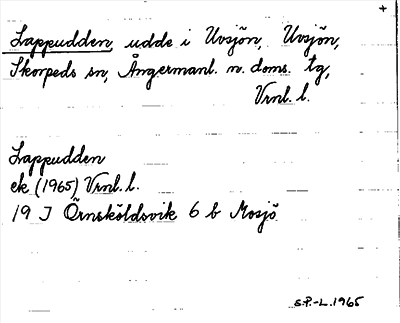 +
Lappudden, udde i Uvsjön, Uvsjön,
Skorpeds sn, Ångermanl. n. doms. tg,
Vrnl. l.
Lappudden
ek (1965) Vrnl. l.
19 J Örnsköldsvik 6 b Mosjö
S.P.-L. 1965